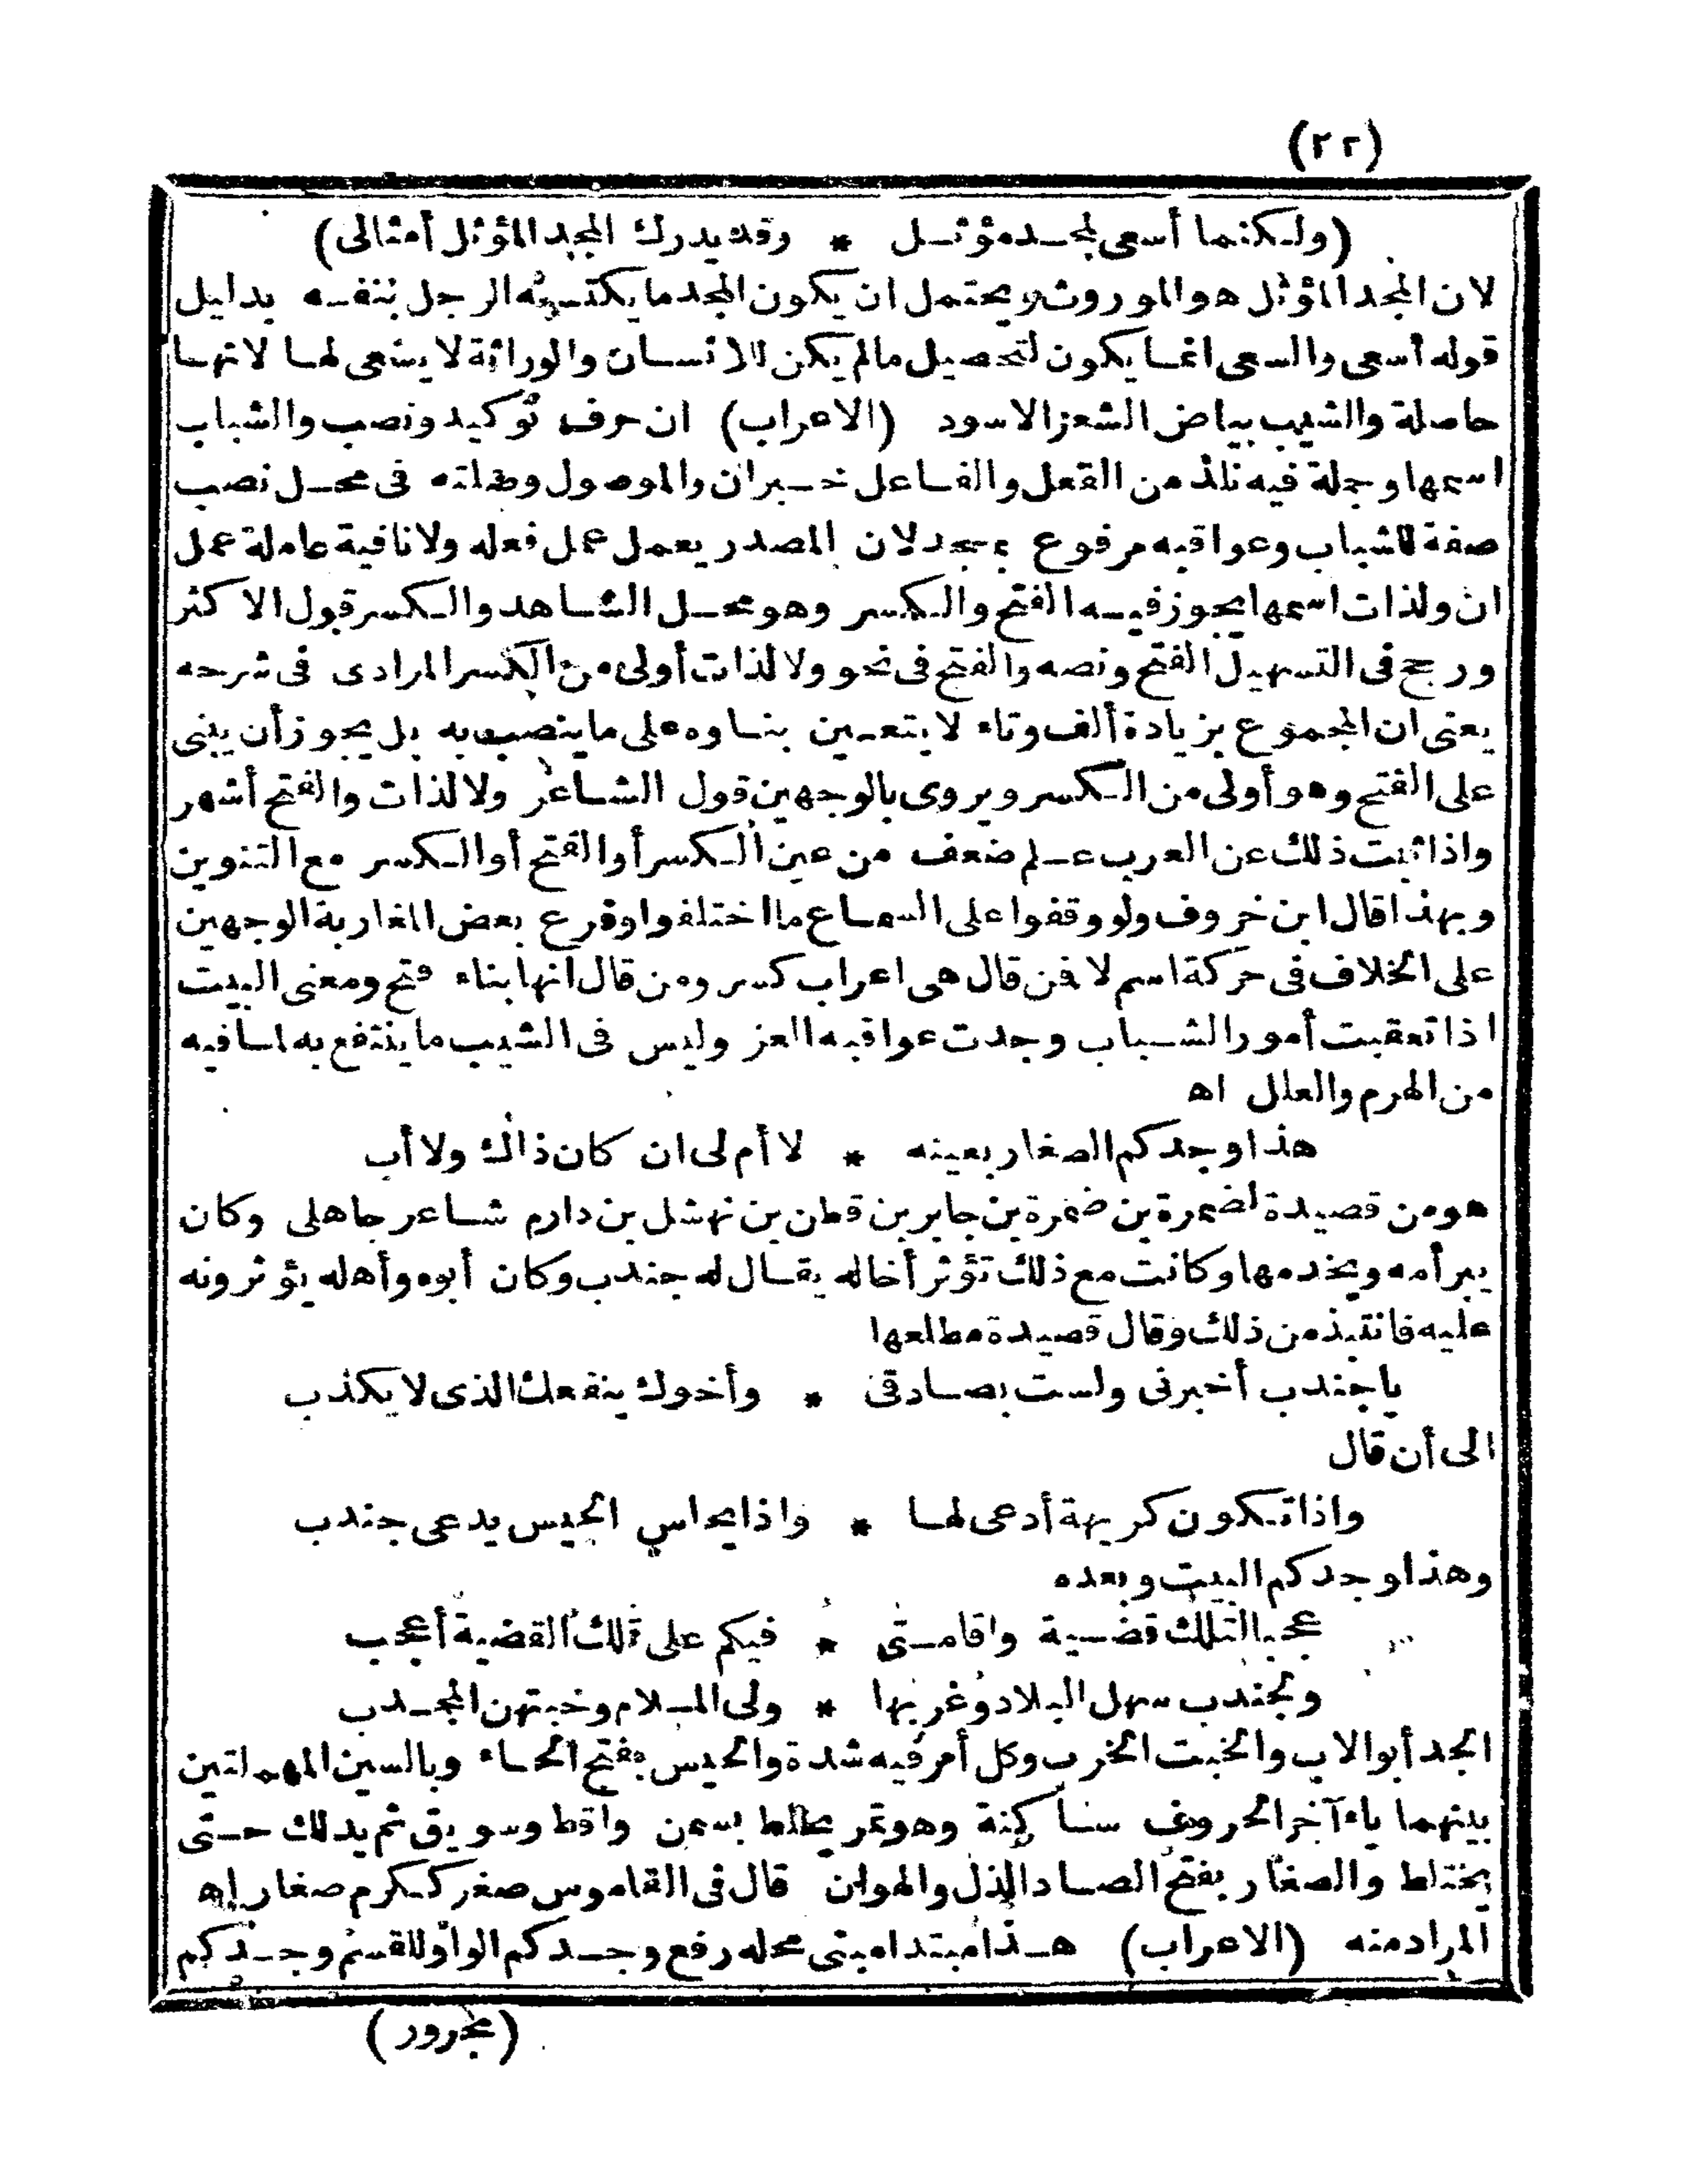 (٢٢)
(ولكنما أسعى لمجد مؤثل * وقد يدرك المجد المؤثل أمثالى)
لان المجد المؤثل هو الموروث ويحتمل ان يكون المجد ما يكتسبه الرجل بنفسه بدليل
قوله أسعى والسعى انما يكون لتحصيل ما لم يكن للانسان والوراثة لا يسعى لها لانها
حاصلة والشيب بياض الشعر الاسود (الاعراب) ان حرف توكيد ونصب والشباب
اسمها وجملة فيه نلذ من الفعل والفاعل خبر ان والموصول وصلته فى محل نصب
صفة للشباب وعواقبه مرفوع بمجد لان المصدر يعمل عمل فعله ولا نافية عاملة عمل
ان ولذات اسمها يجوز فيه الفتح والكسر وهو محل الشاهد والكسر قول الاكثر
ورجح فى التسهيل الفتح ونصه والفتح فى نحو ولا لذات أولى من الكسر المرادى فى شرحه
يعنى ان المجموع بزيادة ألف وتاء لا يتعين بناوه على ما ينصب به بل يجوز أن يبنى
على الفتح وهو أولى من الكسر ويروى بالوجهين قول الشاعر ولا لذات والفتح أشهر
واذا ثبت ذلك عن العرب علم ضعف من عين الكسر أو الفتح أو الكسر مع التنوين
وبهذا قال ابن خروف ولو وقفوا على السماع ما اختلفوا وفرع بعض المغاربة الوجهين
على الخلاف فى حركة اسم لا فمن قال هى اعراب كسر ومن قال انها بناء فتح ومعنى البيت
اذا تعقبت أمور الشباب وجدت عواقبه العز وليس فى الشيب ما ينتفع به لما فيه
من الهرم والعلل اه
هذا وجدكم الصغار بعينه * لا أم لى ان كان ذاك ولا أب
هو من قصيدة لضمرة بن ضمرة بن جابر بن قطن بن نهشل بن دارم شاعر جاهلى وكان
يبر أمه ويخدمها وكانت مع ذلك تؤثر أخا له يقال له جندب وكان أبوه وأهله يؤثرونه
عليه فانتبذ من ذلك وقال قصيدة مطلعها
يا جندب أخبرنى ولست بصادقى * وأخوك ينفعك الذى لا يكذب
الى أن قال
واذا تكون كريهة أدعى لها * واذا يحاس الحيس يدعى جندب
وهذا وجدكم البيت وبعده
عجبا لتلك قضية واقامتى * فيكم على تلك القضية أعجب
ولجندب سهل البلاد وغربها * ولى الملام وخبتهن المجدب
الجد أبو الاب والخبت الخرب وكل أمر فيه شدة والحيس بفتح الحاء وبالسين المهملتين
بينهما ياء آخر الحروف ساكنة وهو تمر يخلط بسمن واقط وسويق ثم يدلك حتى
يختلط والصغار بفتح الصاد الذل والهوان قال فى القاموس صغر ككرم صغار اه
المراد منه (الاعراب) هذا مبتدا مبنى محله رفع وجدكم الواو للقسم وجدكم
(مجرور)